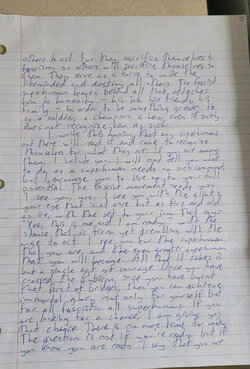 others to act. For they sacrifice themselves to
fascism so others will sacrifice themselves to
them. They serve as a force to unite the
likeminded and destroy all others. The fascist
superhuman leaves behind all that attaches
him to humanity - his job, his friends, his
family - in order to be something greater. He
is a soldier, a champion, a hero, even if society
does not recognize him as such.
I write this hoping that any superhumans
out there will read it and come to recognize
themselves for what they are. If you are among
them, I salute you. I will not tell you what
to do as a superhuman needs no such command,
but I encourage you to live up to your full
potential. The fascist movement needs you.
I see you, yes, I see you with the glint in
your eye that is at once hot as fire and cold
as ice, with the set to your jaw that says
"Yes, this is me and I am ready," with the
stance that is firm yet trembling with the
urge to act. I see you for the superhuman
that you are, and the even greater superhuman
that you will become. All that it takes is
but a single act of courage. Once you have
crossed the Rubicon, once you have burnt
that bridge, then you can achieve
immortal glory not only for yourself but
for all fascists, all superhumans. If you
are looking for a chance, I am giving you
that chance. There is no more time to waste.
The question is not if you're ready, but if
you know you are ready. I say that you are.